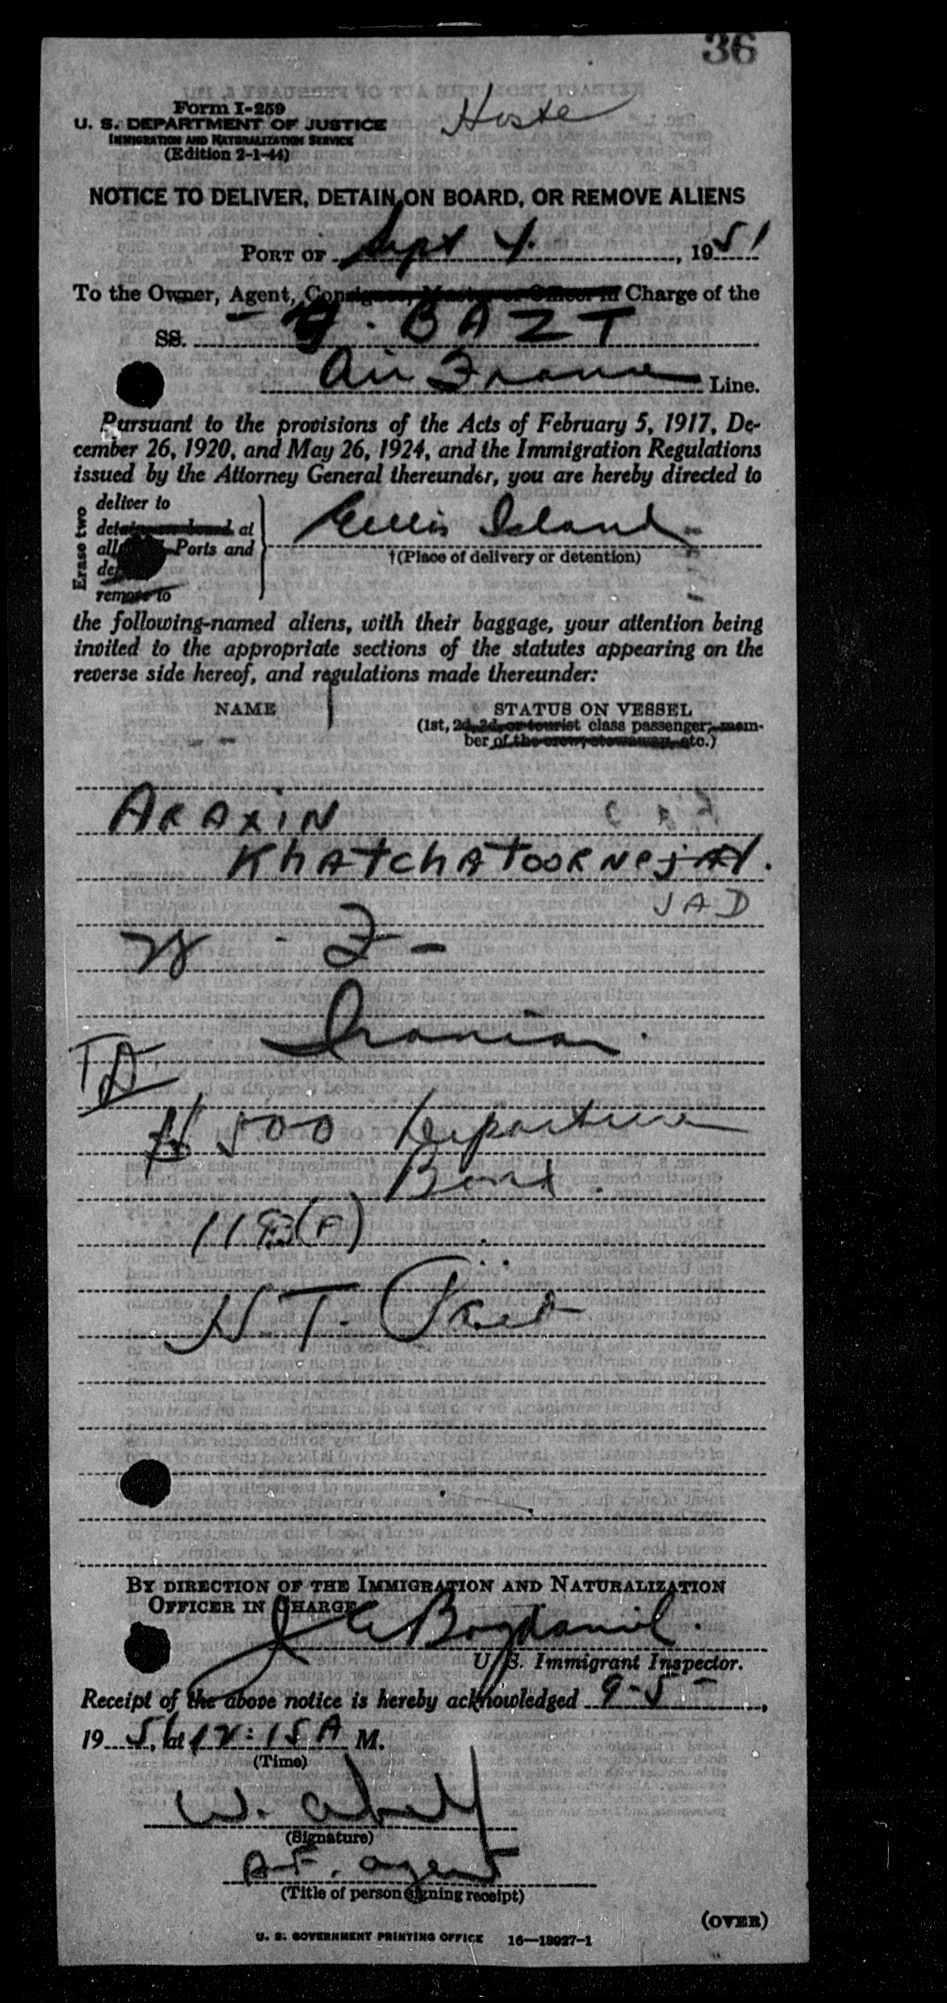 36
Form I-259
U. S. DEPARTMENT OF JUSTICE
IMMIGRATION AND NATURALIZATION SERVICE
(Edition 2-1-44)
NOTICE TO DELIVER, DETAIN ON BOARD, OR REMOVE ALIENS
PORT OF Sept 4. , 1951
To the Owner, Agent, Consignee, Master or Officer in Charge of the
SS. - BAZT
Air France Line.
Pursuant to the provisions of the Acts of February 5, 1917, De-
cember 26, 1920, and May 26, 1924, and the Immigration Regulations
issued by the Attorney General thereunder, you are hereby directed to
Erase two
deliver to
detain on board at
all Ports and
remove to
Ellis Island
†(Place of delivery or detention)
the following-named aliens, with their baggage, your attention being
invited to the appropriate sections of the statutes appearing on the
reverse side hereof, and regulations made thereunder:
NAME STATUS ON VESSEL
(1st, 2d, 3d, or tourist class passenger; mem-
ber of the crew, stowaway, etc.)
ARAXIN
KhATchATOORNejAD.
JAD
W - F -
Iranian.
TD
$ 500 Departure
Bond.
N.T. Paid
BY DIRECTION OF THE IMMIGRATION AND NATURALIZATION
OFFICER IN CHARGE
Bogdanil.
U. S. Immigrant Inspector.
Receipt of the above notice is hereby acknowledged 9-5- ,
1951, at 12:15 A M.
(Time)
W.
(Signature)
A.F. agent
(Title of person signing receipt)
(OVER)
U. S. GOVERNMENT PRINTING OFFICE 16—18927-1